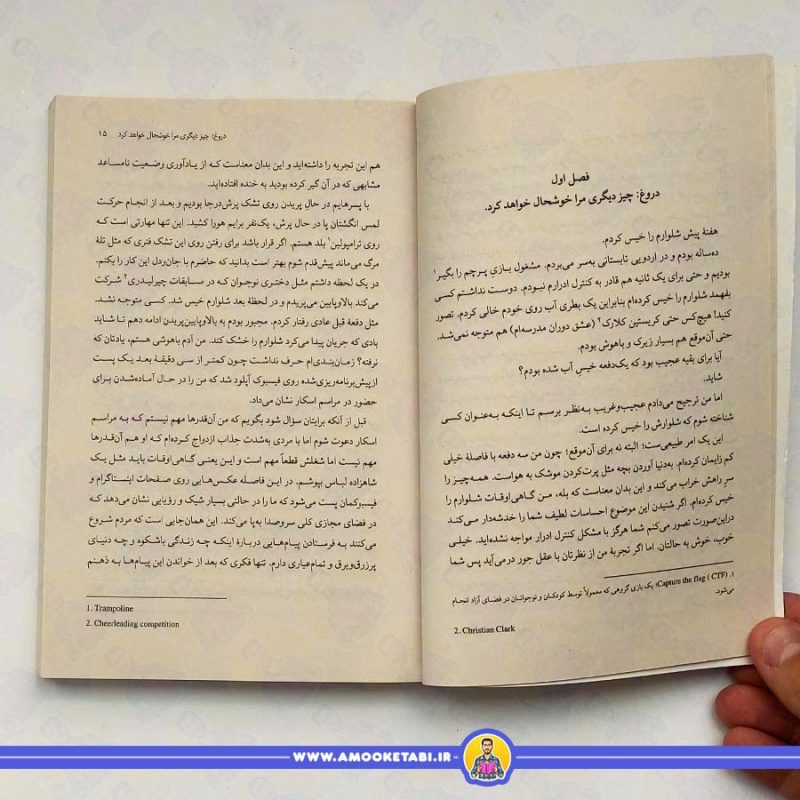 فصل اول
دروغ: چیز دیگری مرا خوشحال خواهد کرد.
هفتهٔ پیش شلوارم را خیس کردم.
ده‌ساله بودم و در اردویی تابستانی به‌سر می‌بردم. مشغول بازیِ پرچم را بگیر۱
بودیم و حتی برای یک ثانیه هم قادر به کنترل ادرارم نبودم. دوست نداشتم کسی
بفهمد شلوارم را خیس کرده‌ام بنابراین یک بطری آب روی خودم خالی کردم. تصور
کنید! هیچ‌کس حتی کریستین کلارک۲ (عشق دوران مدرسه‌ام) هم متوجه نمی‌شد.
حتی آن‌موقع هم بسیار زیرک و باهوش بودم.
آیا برای بقیه عجیب بود که یک‌دفعه خیسِ آب شده بودم؟
شاید.
اما من ترجیح می‌دادم عجیب‌وغریب به‌نظر برسم تا اینکه به‌عنوان کسی
شناخته شوم که شلوارش را خیس کرده است.
این یک امر طبیعی‌ست؛ البته نه برای آن‌موقع؛ چون من سه دفعه با فاصلهٔ خیلی
کم زایمان کرده‌ام. به‌دنیا آوردن بچه مثل پرت‌کردن موشک به هواست. همه‌چیز را
سرِ راهش خراب می‌کند و این بدان معناست که بله، من گاهی‌اوقات شلوارم را
خیس کرده‌ام. اگر شنیدن این موضوع احساسات لطیف شما را خدشه‌دار می‌کند
دراین‌صورت تصور می‌کنم شما هرگز با مشکل کنترل ادرار مواجه نشده‌اید. خیلی
خوب، خوش به حالتان. اما اگر تجربهٔ من از نظرتان با عقل جور درمی‌آید پس شما
۱. Capture the flag ( CTF): یک بازی گروهی که معمولاً توسط کودکان و نوجوانان در فضای آزاد انجام
می‌شود.
2. Christian Clark
دروغ: چیز دیگری مرا خوشحال خواهد کرد ۱۵
هم این تجربه را داشته‌اید و این بدان معناست که از یادآوری وضعیت نامساعد
مشابهی که در آن گیر کرده بودید به خنده افتاده‌اید.
با پسرهایم در حال پریدن روی تشک پرش‌درجا بودیم و بعد از انجام حرکت
لمس انگشتان پا در حال پرش، یک‌نفر برایم هورا کشید. این تنها مهارتی است که
روی ترامپولین۱ بلد هستم. اگر قرار باشد برای رفتن روی این تشک فنری که مثل تلهٔ
مرگ می‌ماند پیش‌قدم شوم بهتر است بدانید که حاضرم با جان‌ودل این کار را بکنم.
در یک لحظه داشتم مثل دختری نوجوان که در مسابقات چیرلیدری۲ شرکت
می‌کند بالاوپایین می‌پریدم و در لحظهٔ بعد شلوارم خیس شد. کسی متوجه نشد.
مثل دفعهٔ قبل عادی رفتار کردم. مجبور بودم به بالاوپایین‌پریدن ادامه دهم تا شاید
بادی که جریان پیدا می‌کرد شلوارم را خشک کند. من آدم باهوشی هستم، یادتان که
نرفته؟ زمان‌بندی‌ام حرف نداشت چون کمتر از سی دقیقهٔ بعد یک پست
ازپیش‌برنامه‌ریزی‌شده روی فیسبوک آپلود شد که من را در حال آماده‌شدن برای
حضور در مراسم اسکار نشان می‌داد.
قبل از آنکه برایتان سؤال شود بگویم که من آن‌قدرها مهم نیستم که به مراسم
اسکار دعوت شوم اما با مردی به‌شدت جذاب ازدواج کرده‌ام که او هم آن‌قدرها
مهم نیست اما شغلش قطعاً مهم است و این یعنی گاهی‌اوقات باید مثل یک
شاهزاده لباس بپوشم. در این فاصله عکس‌هایی روی صفحات اینستاگرام و
فیسبوکمان پست می‌شود که ما را در حالتی بسیار شیک و رؤیایی نشان می‌دهد که
در فضای مجازی کلی سروصدا به‌پا می‌کند. این همان‌جایی است که مردم شروع
می‌کنند به فرستادن پیام‌هایی دربارهٔ اینکه چه زندگی باشکوه و چه دنیای
پرزرق‌وبرق و تمام‌عیاری دارم. تنها فکری که بعد از خواندن این پیام‌ها به ذهنم
1. Trampoline
2. Cheerleading competition
WWW.AMOOKETABI.IR